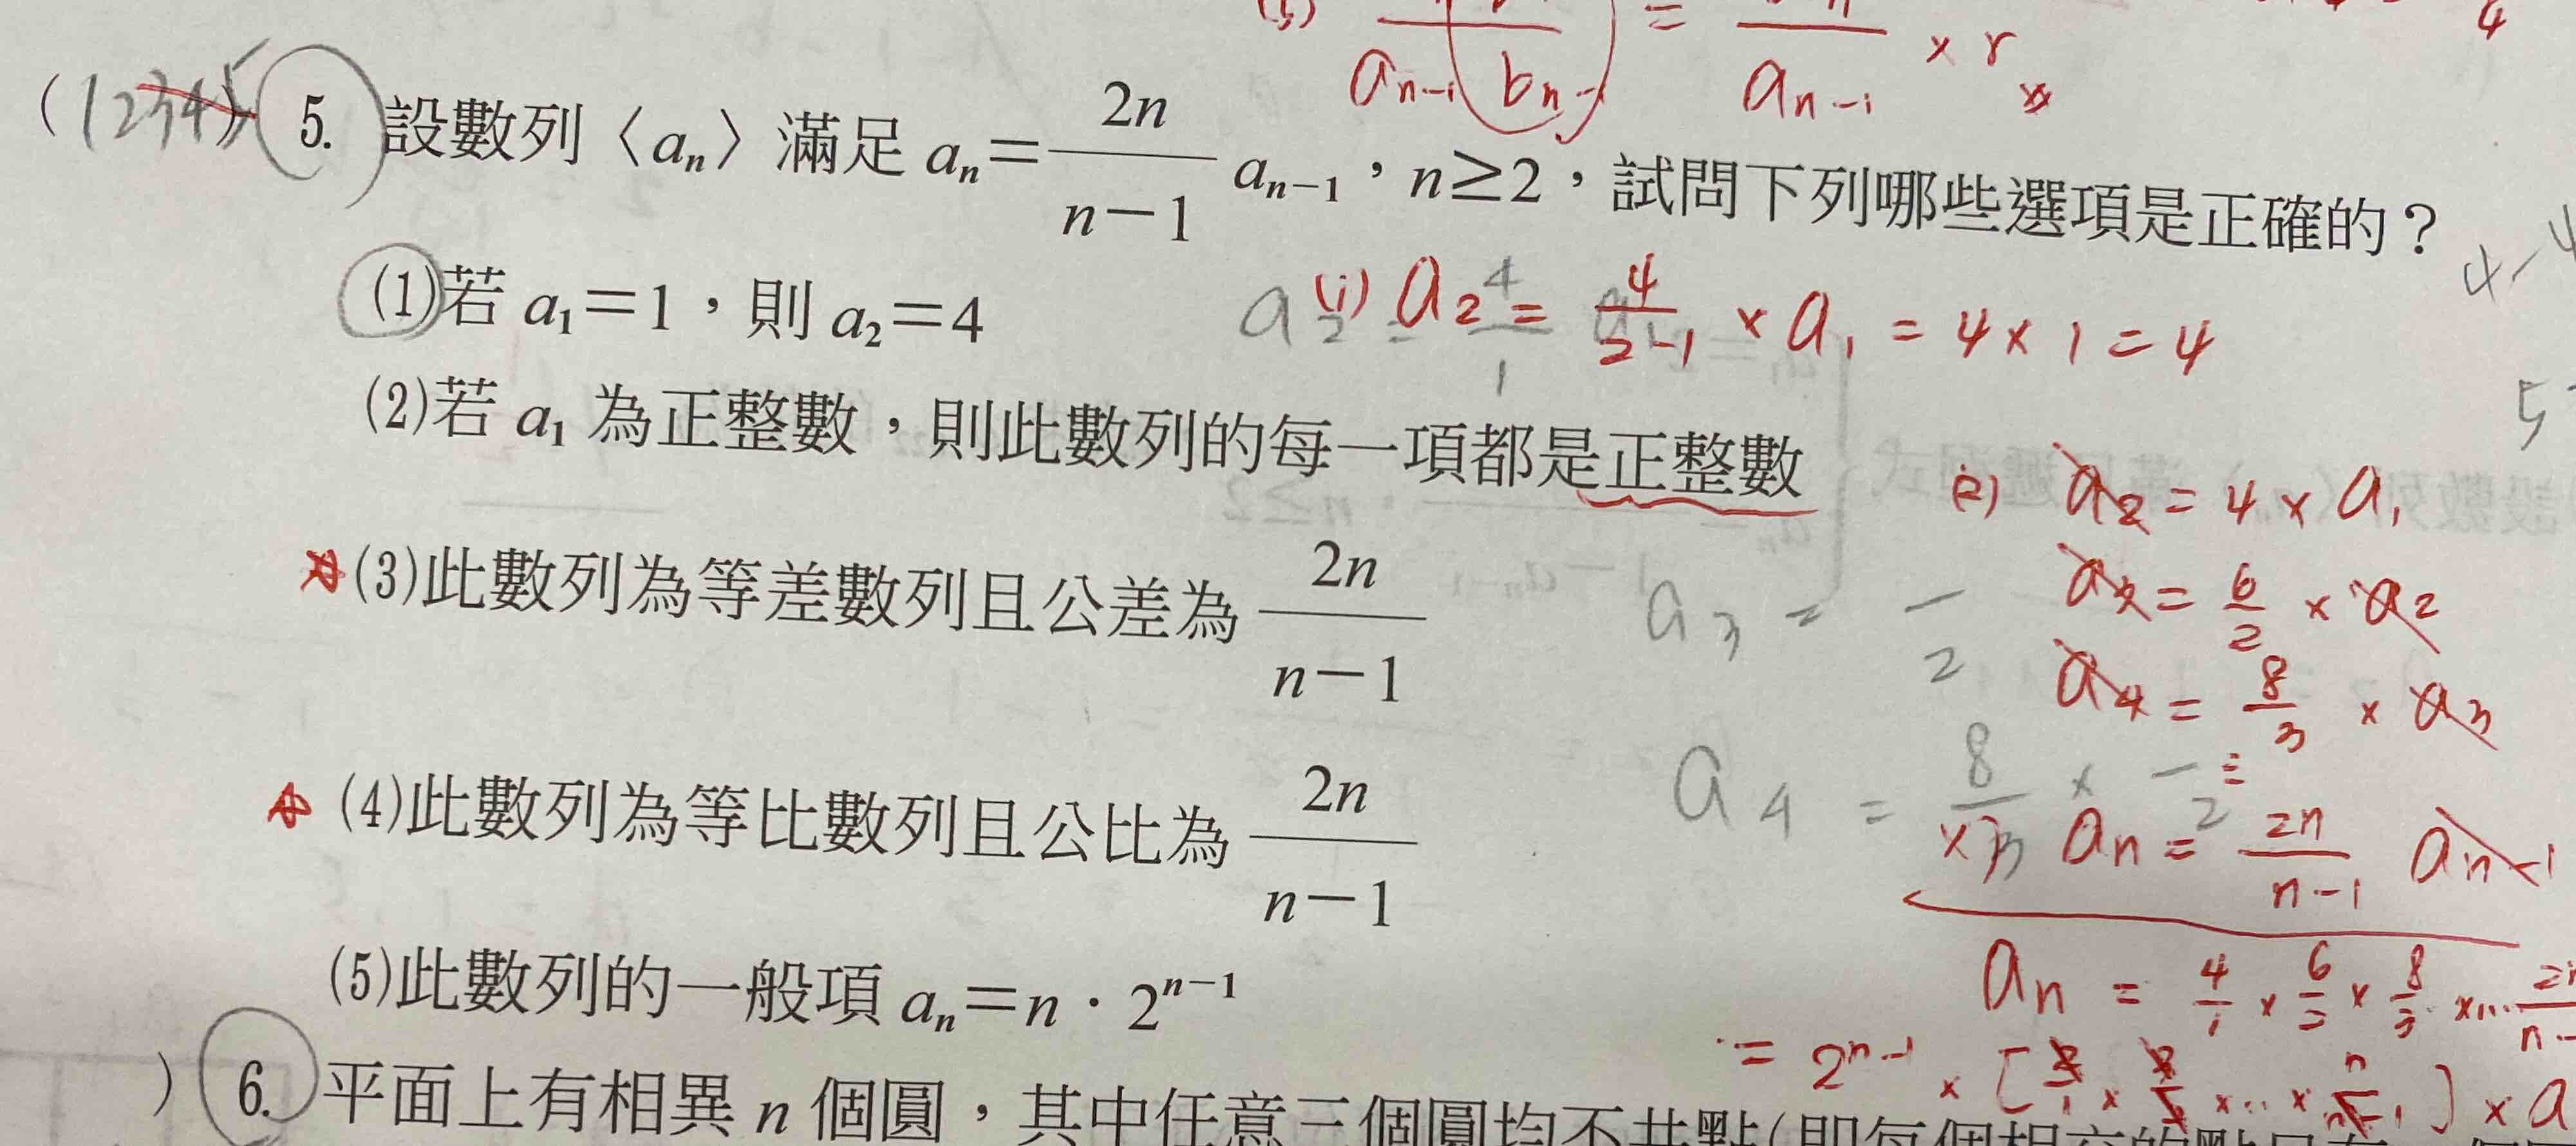 (5) a_{n-1} b_{n-1} = a_{n-1} × r 4
(1234) 5. 設數列〈a_n〉滿足 a_n = \frac{2n}{n-1} a_{n-1},n≥2,試問下列哪些選項是正確的?
(1)若 a_1=1,則 a_2=4
a_2 = \frac{4}{1}
(1) a_2 = \frac{4}{2-1} × a_1 = 4 × 1 = 4
(2)若 a_1 為正整數,則此數列的每一項都是正整數
(2) a_2 = 4 × a_1
(3)此數列為等差數列且公差為 \frac{2n}{n-1}
a_3 = \frac{}{2}
= \frac{6}{2} × a_2
a_4 = \frac{8}{3} × a_3
(4)此數列為等比數列且公比為 \frac{2n}{n-1}
a_4 = \frac{8}{3} × \frac{}{2}
×) a_n = \frac{2n}{n-1} a_{n-1}
(5)此數列的一般項 a_n=n · 2^{n-1}
a_n = \frac{4}{1} × \frac{6}{2} × \frac{8}{3} × ...
= 2^{n-1} × [ \frac{2}{1} × × ... × \frac{n}{n-1} ] × a
) 6. 平面上有相異 n 個圓,其中任意三個圓均不共點(即每個相交的點只有